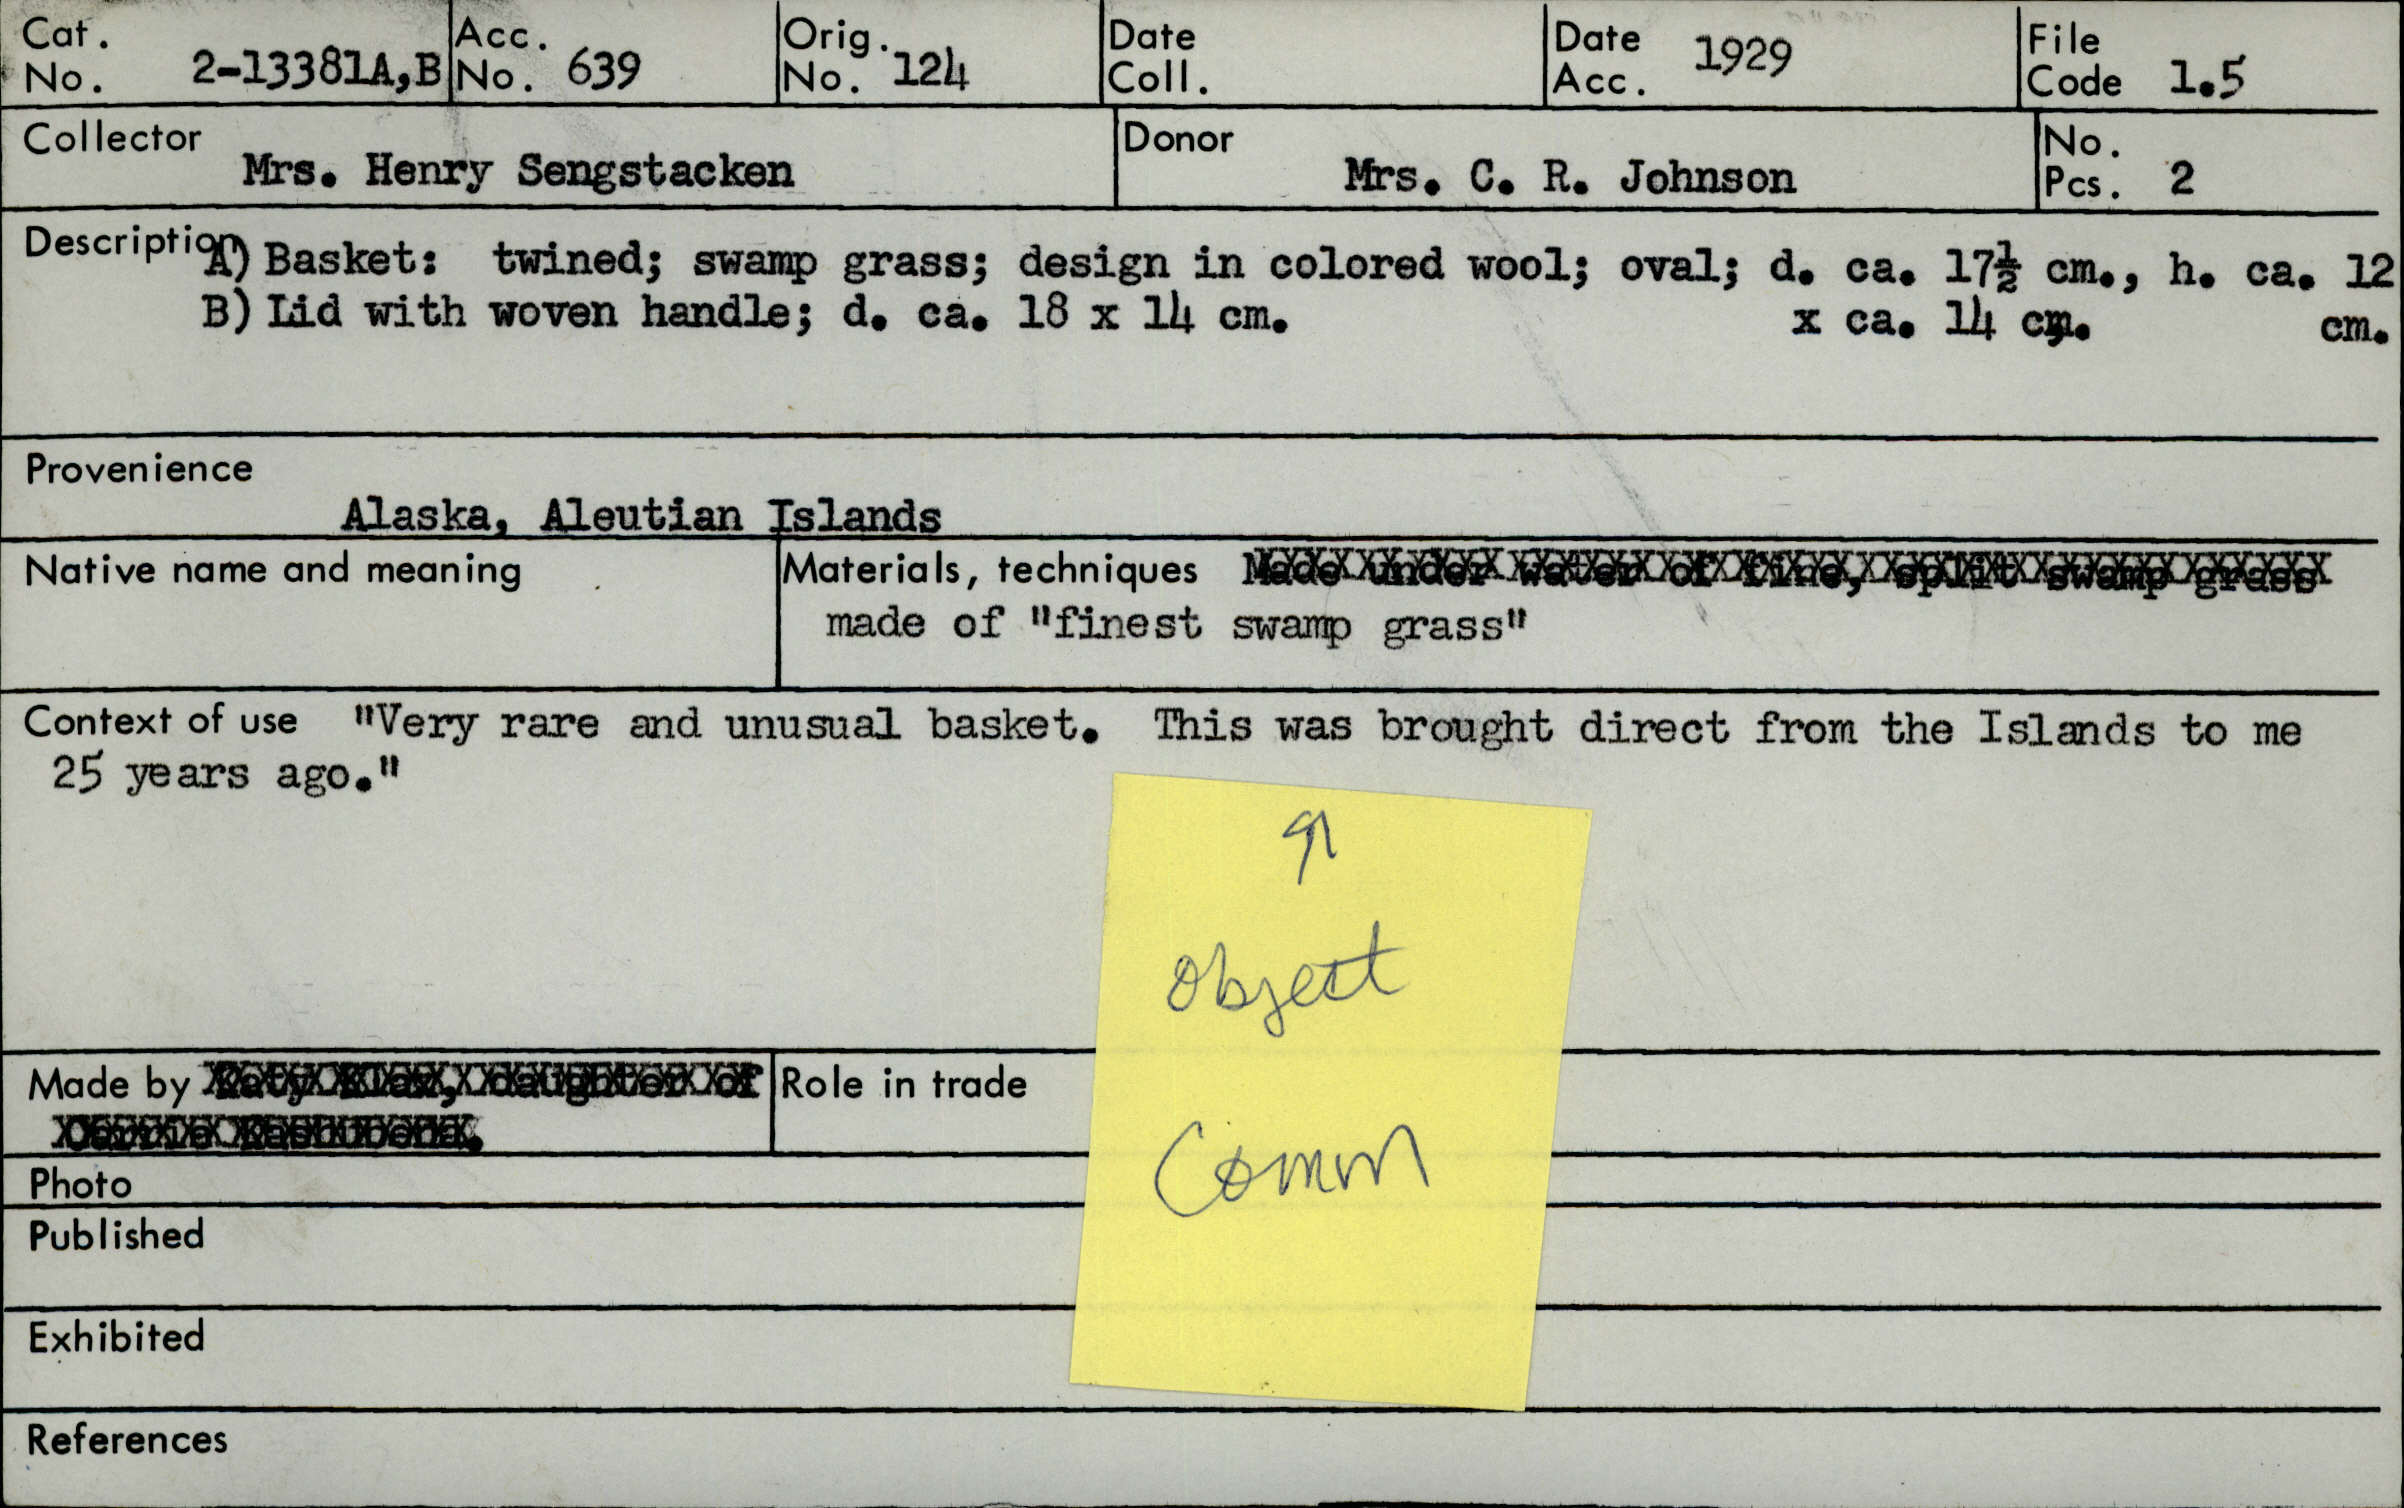 Cat. No. 2-13381A,B Acc. No. 639 Orig. No. 124 Date Coll. Date Acc. 1929 File Code 1.5
Collector Mrs. Henry Sengstacken Donor Mrs. C. R. Johnson No. Pcs. 2
Description A) Basket: twined; swamp grass; design in colored wool; oval; d. ca. 17½ cm., h. ca. 12
B) Lid with woven handle; d. ca. 18 x 14 cm. x ca. 14 cm. cm.
Provenience
Alaska, Aleutian Islands
Native name and meaning
Materials, techniques Made under water of fine, split swamp grass
made of "finest swamp grass"
Context of use "Very rare and unusual basket. This was brought direct from the Islands to me
25 years ago."
Object
Comm
Made by daughter of
Carrie
Role in trade
Photo
Published
Exhibited
References